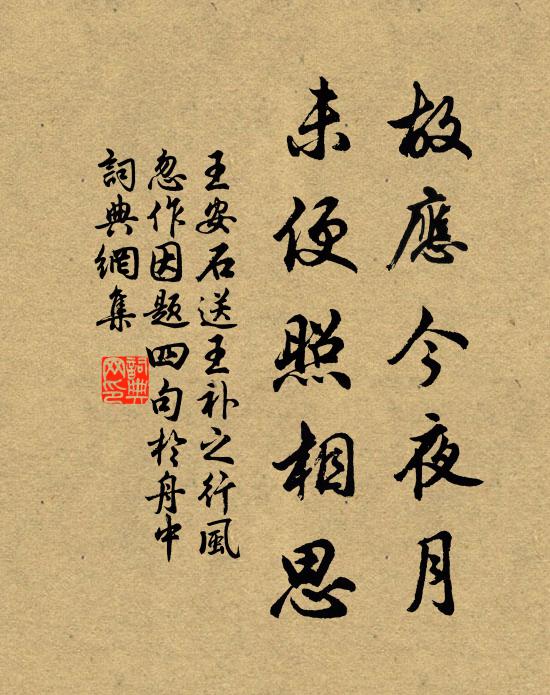 故應今夜月
未便照相思
王安石送王补之行風
忽作因題四句於舟中
詞典網集
詞典網印